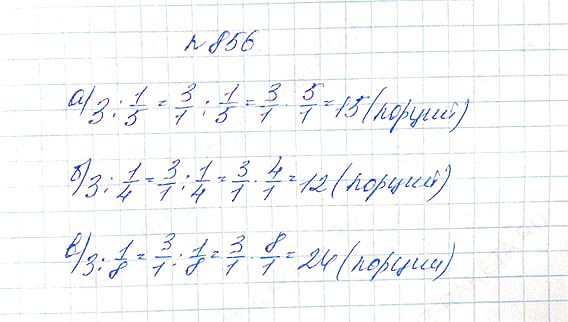 №856
а) 3 : 1/5 = 3/1 : 1/5 = 3/1 · 5/1 = 15 (порций)
б) 3 : 1/4 = 3/1 : 1/4 = 3/1 · 4/1 = 12 (порций)
в) 3 : 1/8 = 3/1 : 1/8 = 3/1 · 8/1 = 24 (порций)